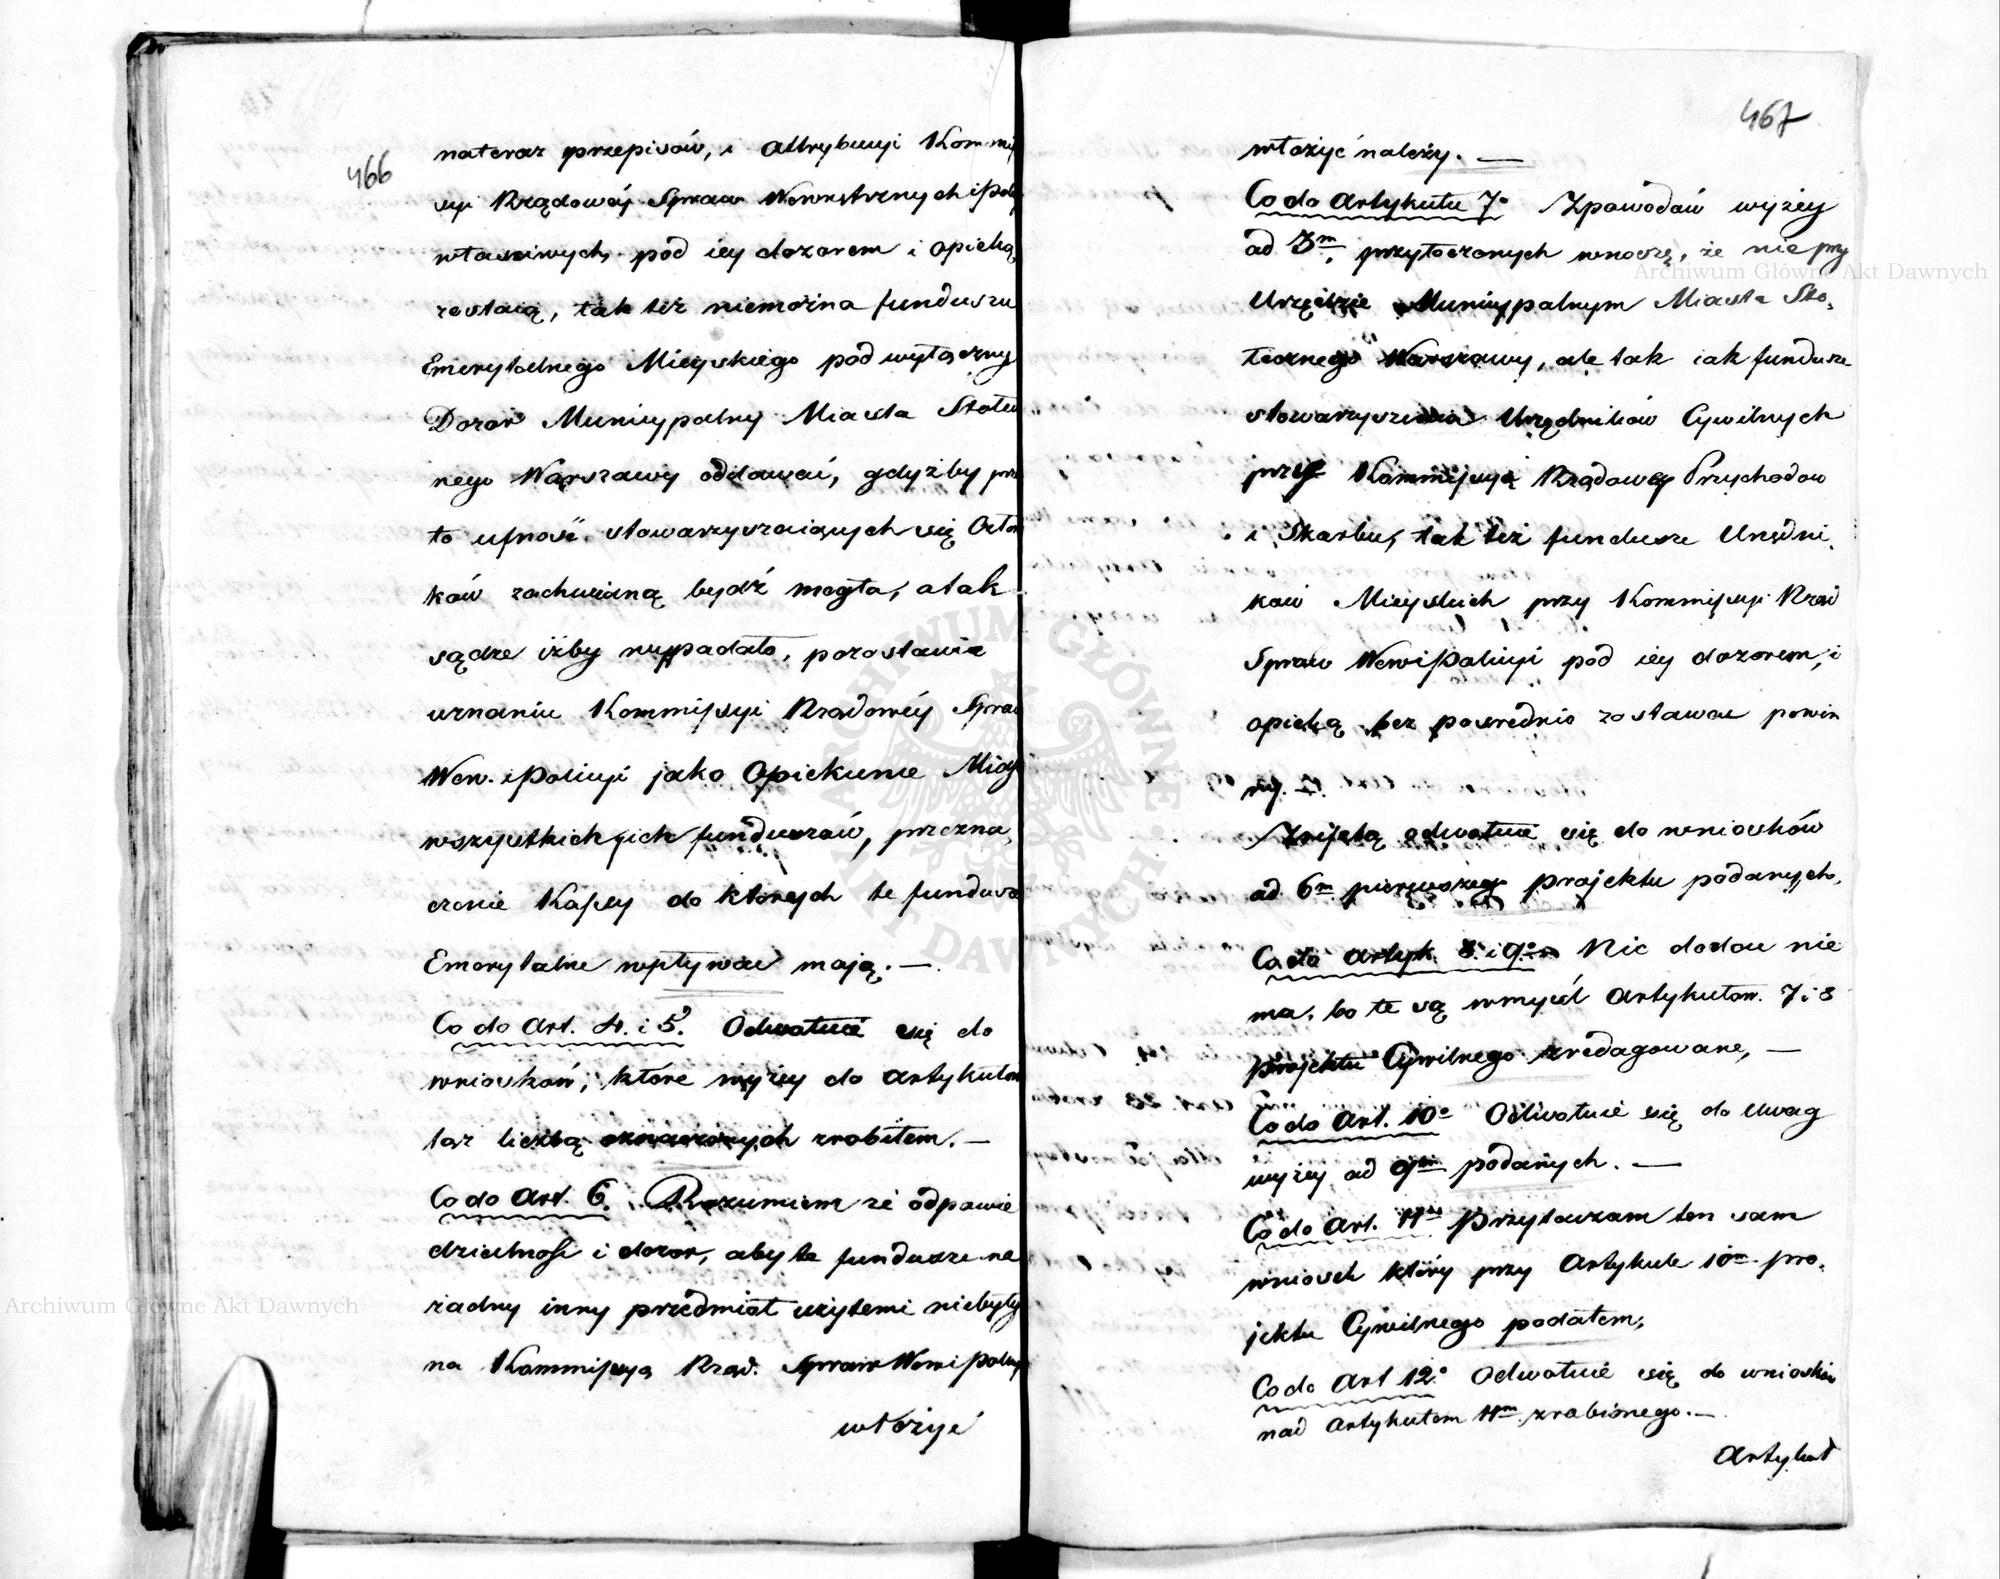 466
nateraz przepisów, i Attrybucyi Kommis
syi Rządowéy Spraw Wewnętrznych i Policyi
właściwych, pod iéy dozorem i opieką
zostaią, tak też niemożna funduszu
Emerytalnego Mieyskiego pod wyłączny
Dozór Municypalny Miasta Stołecz
nego Warszawy oddawać, gdyżby prze
to ufność stowarzyszaiących się Człon
ków zachwianą bydź mogła, a tak
sądzę iżby wypadało, pozostawić
uznaniu Kommissyi Rządowéy Spraw
Wew. i Policyi jako Opiekunce Miast
wszystkich, ich funduszów, przezna,
czenie Kassy do których te fundusze
Emerytalne wpływać mają. —
Co do Art. 4. i 5. Odwołuię się do
wniosków, które wyżey do Artykułów
taż liczbą oznaczonych zrobiłem. —
Co do Art. 6. Rozumiem że odpowie
dzialność i dozór, aby te fundusze na
żadny inny przedmiot użytemi niebyły
na Kommissyą Rząd. Spraw Wew i Policyi
włożyć
467
włożyć należy. —
Co do Artykułu 7o Z powodów wyżey
ad 3m przytoczonych wnoszę, że nie przy
Urzędzie Municypalnym Miasta Sto,
łecznego Warszawy, ale tak iak fundusze
stowarzyszenia Urzędników Cywilnych
przy Kommissyi Rządowey Przychodów
i Skarbu, tak też fundusze Urzędni,
ków Mieyskich przy Kommissyi Rząd
Spraw Wew i Policyi pod iéy dozorem, i
opieką bezpośrednio zostawać powin
ny.
Z resztą odwołuię się do wniosków
ad 6m pierwszego projektu podanych.
Co do Artyk. 8. i 9o Nic dodać nie
ma, bo te są w myśl Artykułów 7 i 8
projektu Cywilnego zredagowane, —
Co do Art. 10o Odwołuię się do Uwag
wyżey ad 9m podanych. —
Co do Art. 11o Przytaczam ten sam
wniosek który przy Artykule 10m pro,
jektu Cywilnego podałem,
Co do Art 12o Odwołuię się do wniosków
nad Artykułem 11m zrobionego. —
Artykuł
Archiwum Główne Akt Dawnych
Archiwum Główne Akt Dawnych
ARCHIWUM GŁÓWNE AKT DAWNYCH